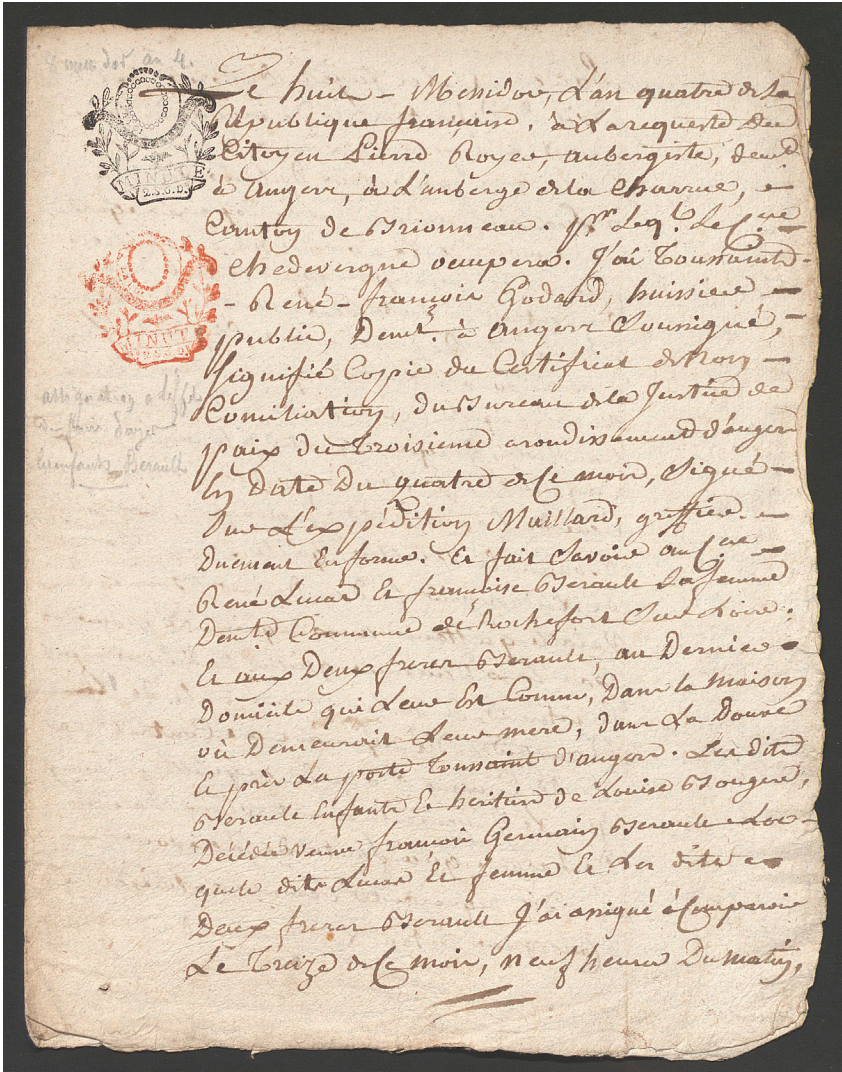 8 messidor an 4.
Le huit - Messidor, L'an quatre de La
République française, à La requeste du
Citoyen Pierre Royer, aubergiste, demt
à angers, à L'auberge de La Charrue, -
Canton de Brionneau. pr Leql. Le Cen
Chedevergne occupera. J'ai Toussaint -
- René - françois Godard, huissier -
public, Demt. à angers Soussigné, -
signifié Copie du Certificat de Non -
Conciliation, du Bureau de la Justice de
paix du Troisieme arondissement d'angers
En Date Du quatre de Ce mois, Signé -
Sur L'expédition Maillard, greffier. -
Duement En forme. Et fait Savoir au Cen -
René Lucas Et francoise Berault Sa femme
Demts Commune de Rochefort Sur Loire.
Et aux Deux freres Berault, au Dernier
Domicile qui Leur Est Connu, Dans la maison
où Demeuroit Leur mere, dans La Douve
Et près La porte Toussaint d'angers. Les dits
Berault Enfants Et heritiers de Louise Bougere,
Décédée veuve francois Germain Berault. Les -
quels dits Lucas Et femme Et Les dits -
Deux freres Berault J'ai assigné à Comparoir
Le Treize de Ce mois, neuf heures Du matin,
MINUTE
2.S.6.D.
MINUTE
assignation a
Les enfants Berault